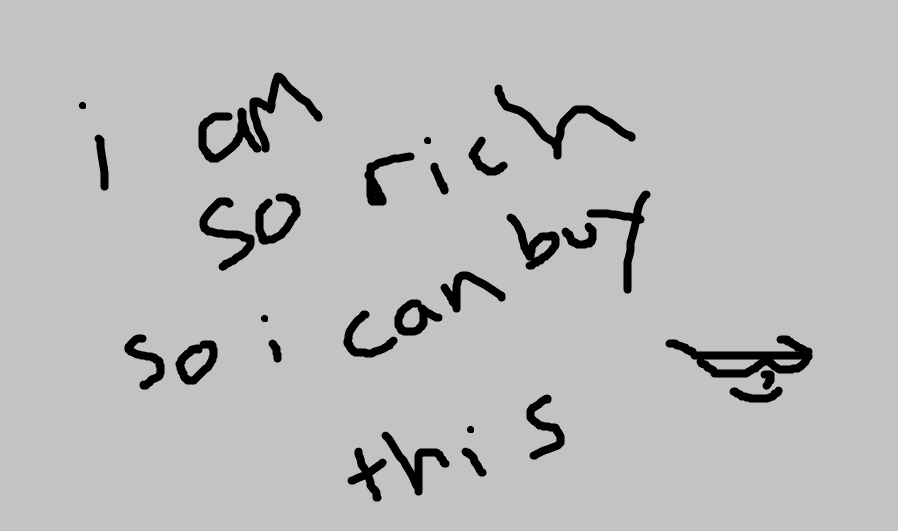 i am
so rich
so i can buy
this